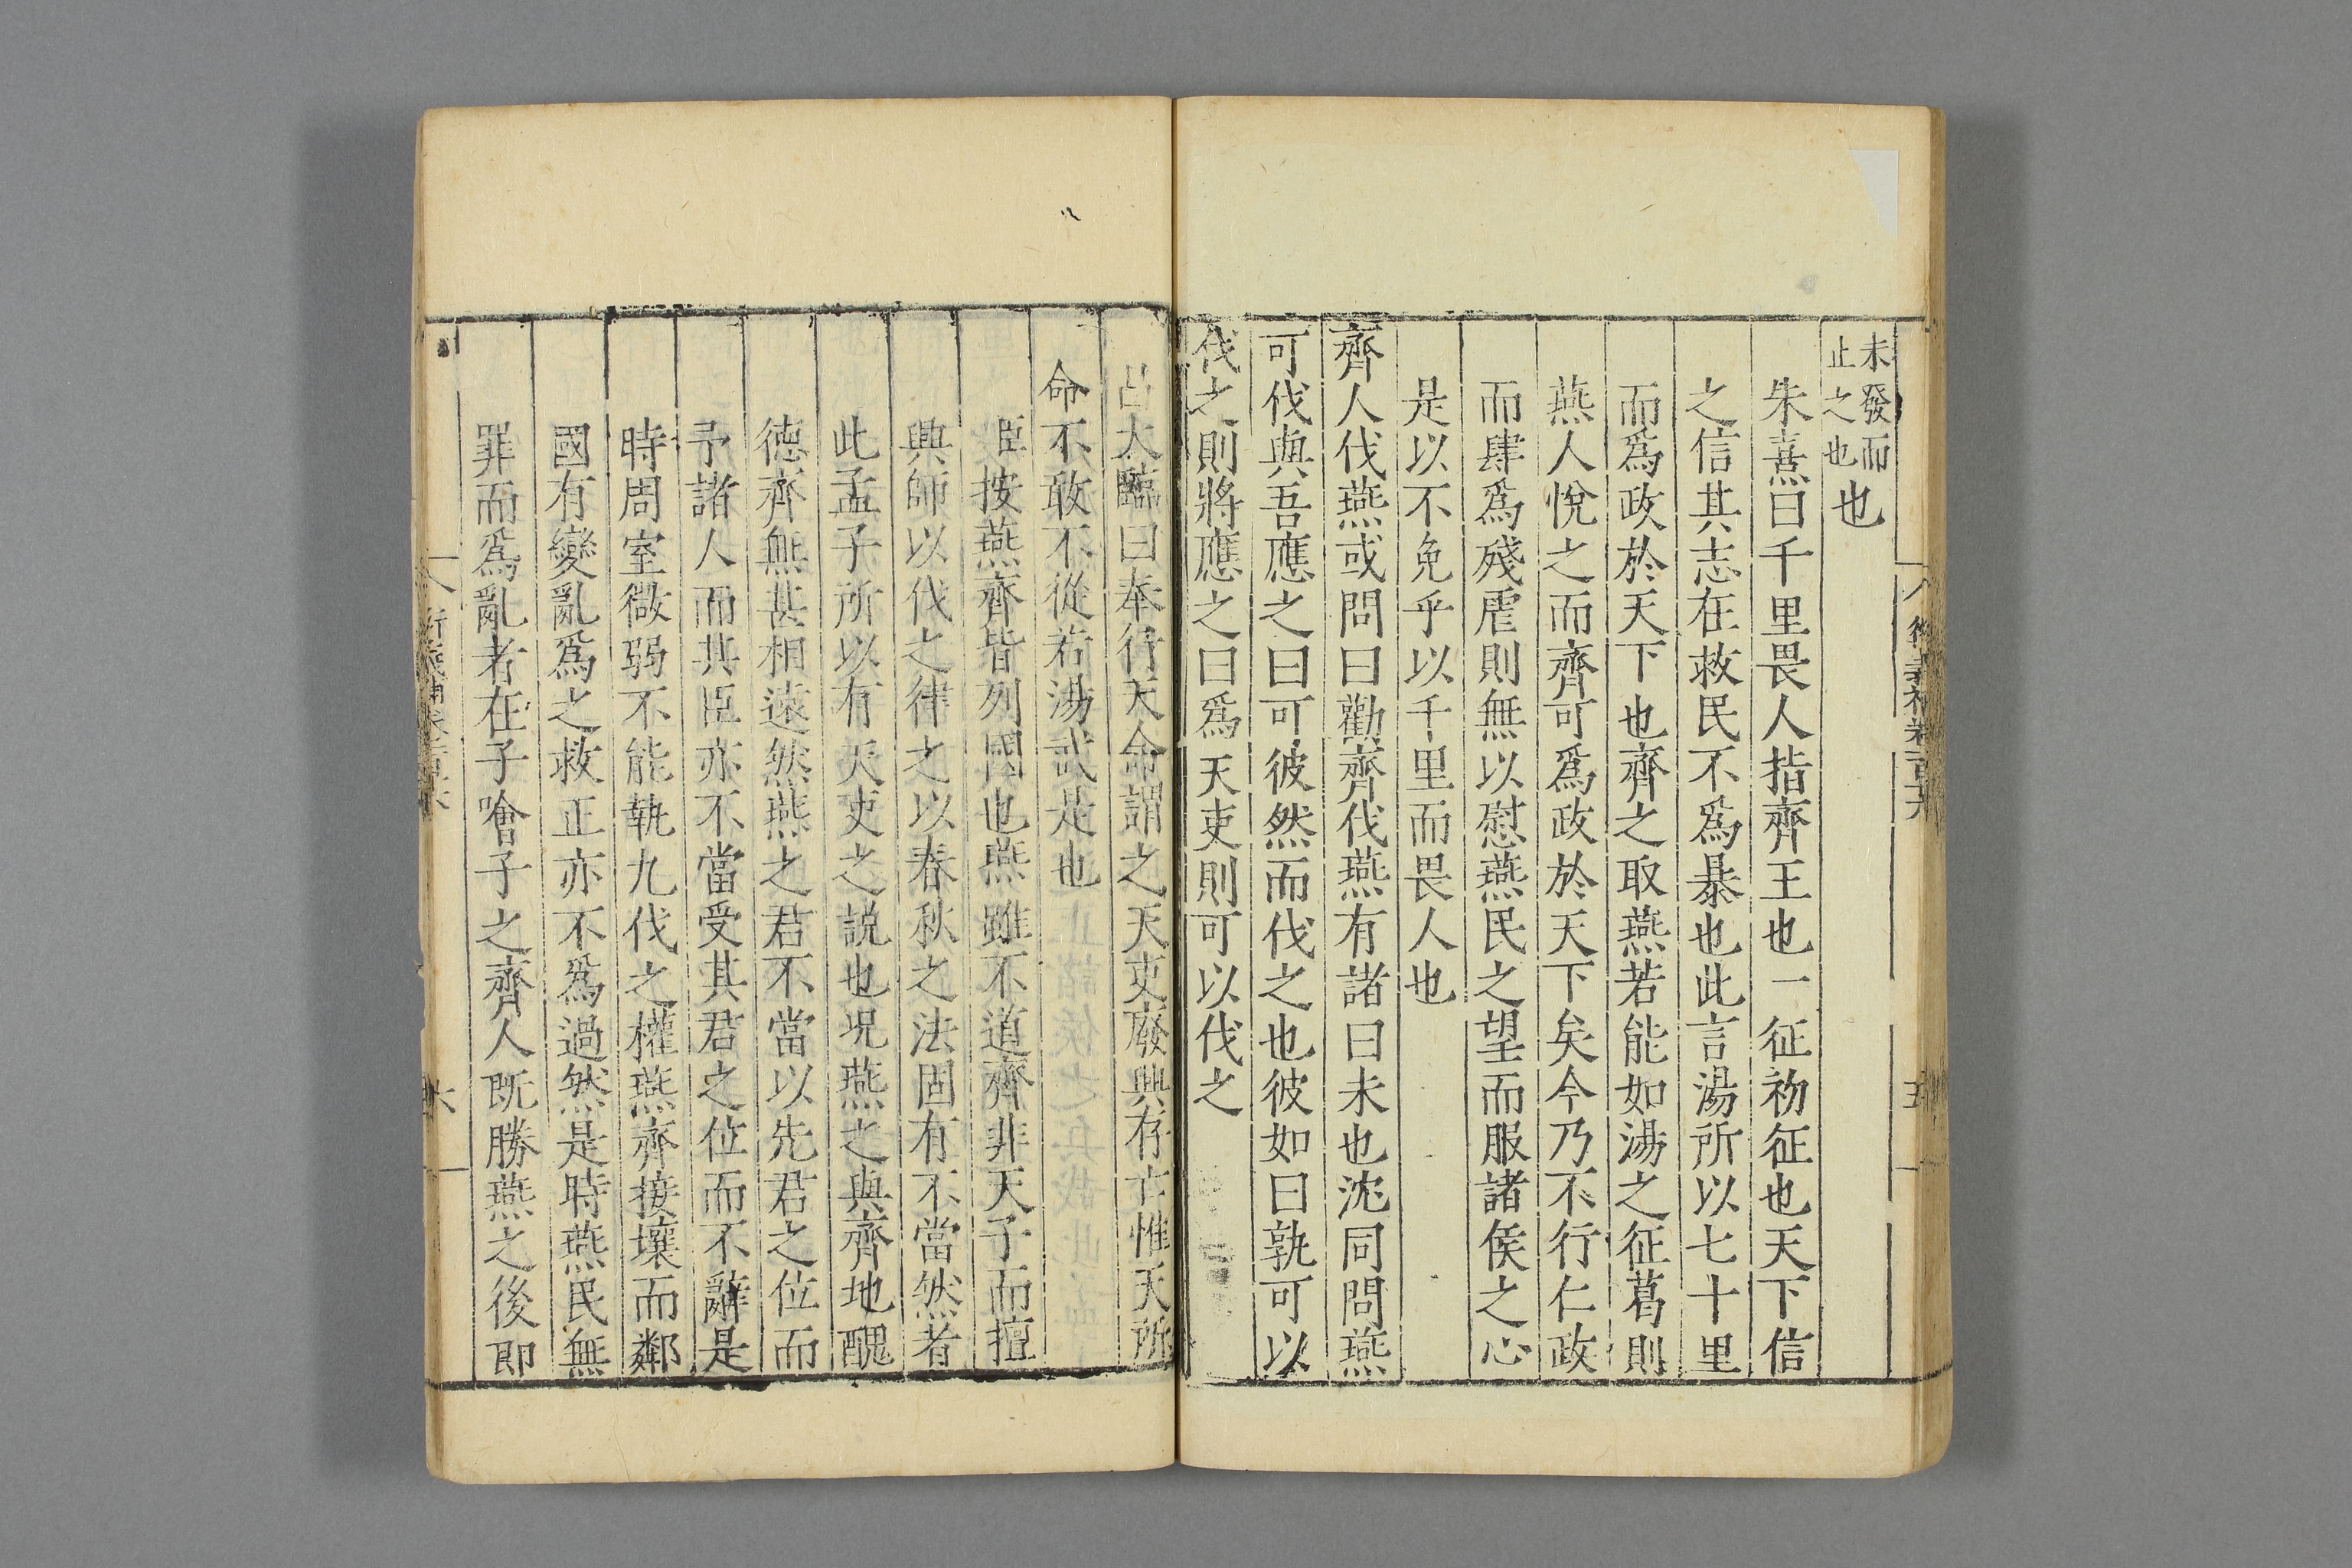 未發而
止之也也
朱熹曰千里畏人指齊王也一征初征也天下信
之信其志在救民不爲暴也此言湯所以七十里
而爲政於天下也齊之取燕若能如湯之征葛則
燕人悅之而齊可爲政於天下矣今乃不行仁政
而肆爲殘虐則無以慰燕民之望而服諸侯之心
是以不免乎以千里而畏人也
齊人伐燕或問曰勸齊伐燕有諸曰未也沈同問燕
可伐與吾應之曰可彼然而伐之也彼如曰孰可以
伐之則將應之曰爲天吏則可以伐之
呂大臨曰奉行天命謂之天吏廢興存亡惟天所
命不敢不從若湯武是也
臣按燕齊皆列國也燕雖不道齊非天子而擅
興師以伐之律之以春秋之法固有不當然者
此孟子所以有天吏之説也况燕之與齊地醜
德齊無甚相遠然燕之君不當以先君之位而
予諸人而其臣亦不當受其君之位而不辭是
時周室微弱不能執九伐之權燕齊接壤而鄰
國有變亂爲之救正亦不爲過然是時燕民無
罪而爲亂者在子噲子之齊人旣勝燕之後即
六